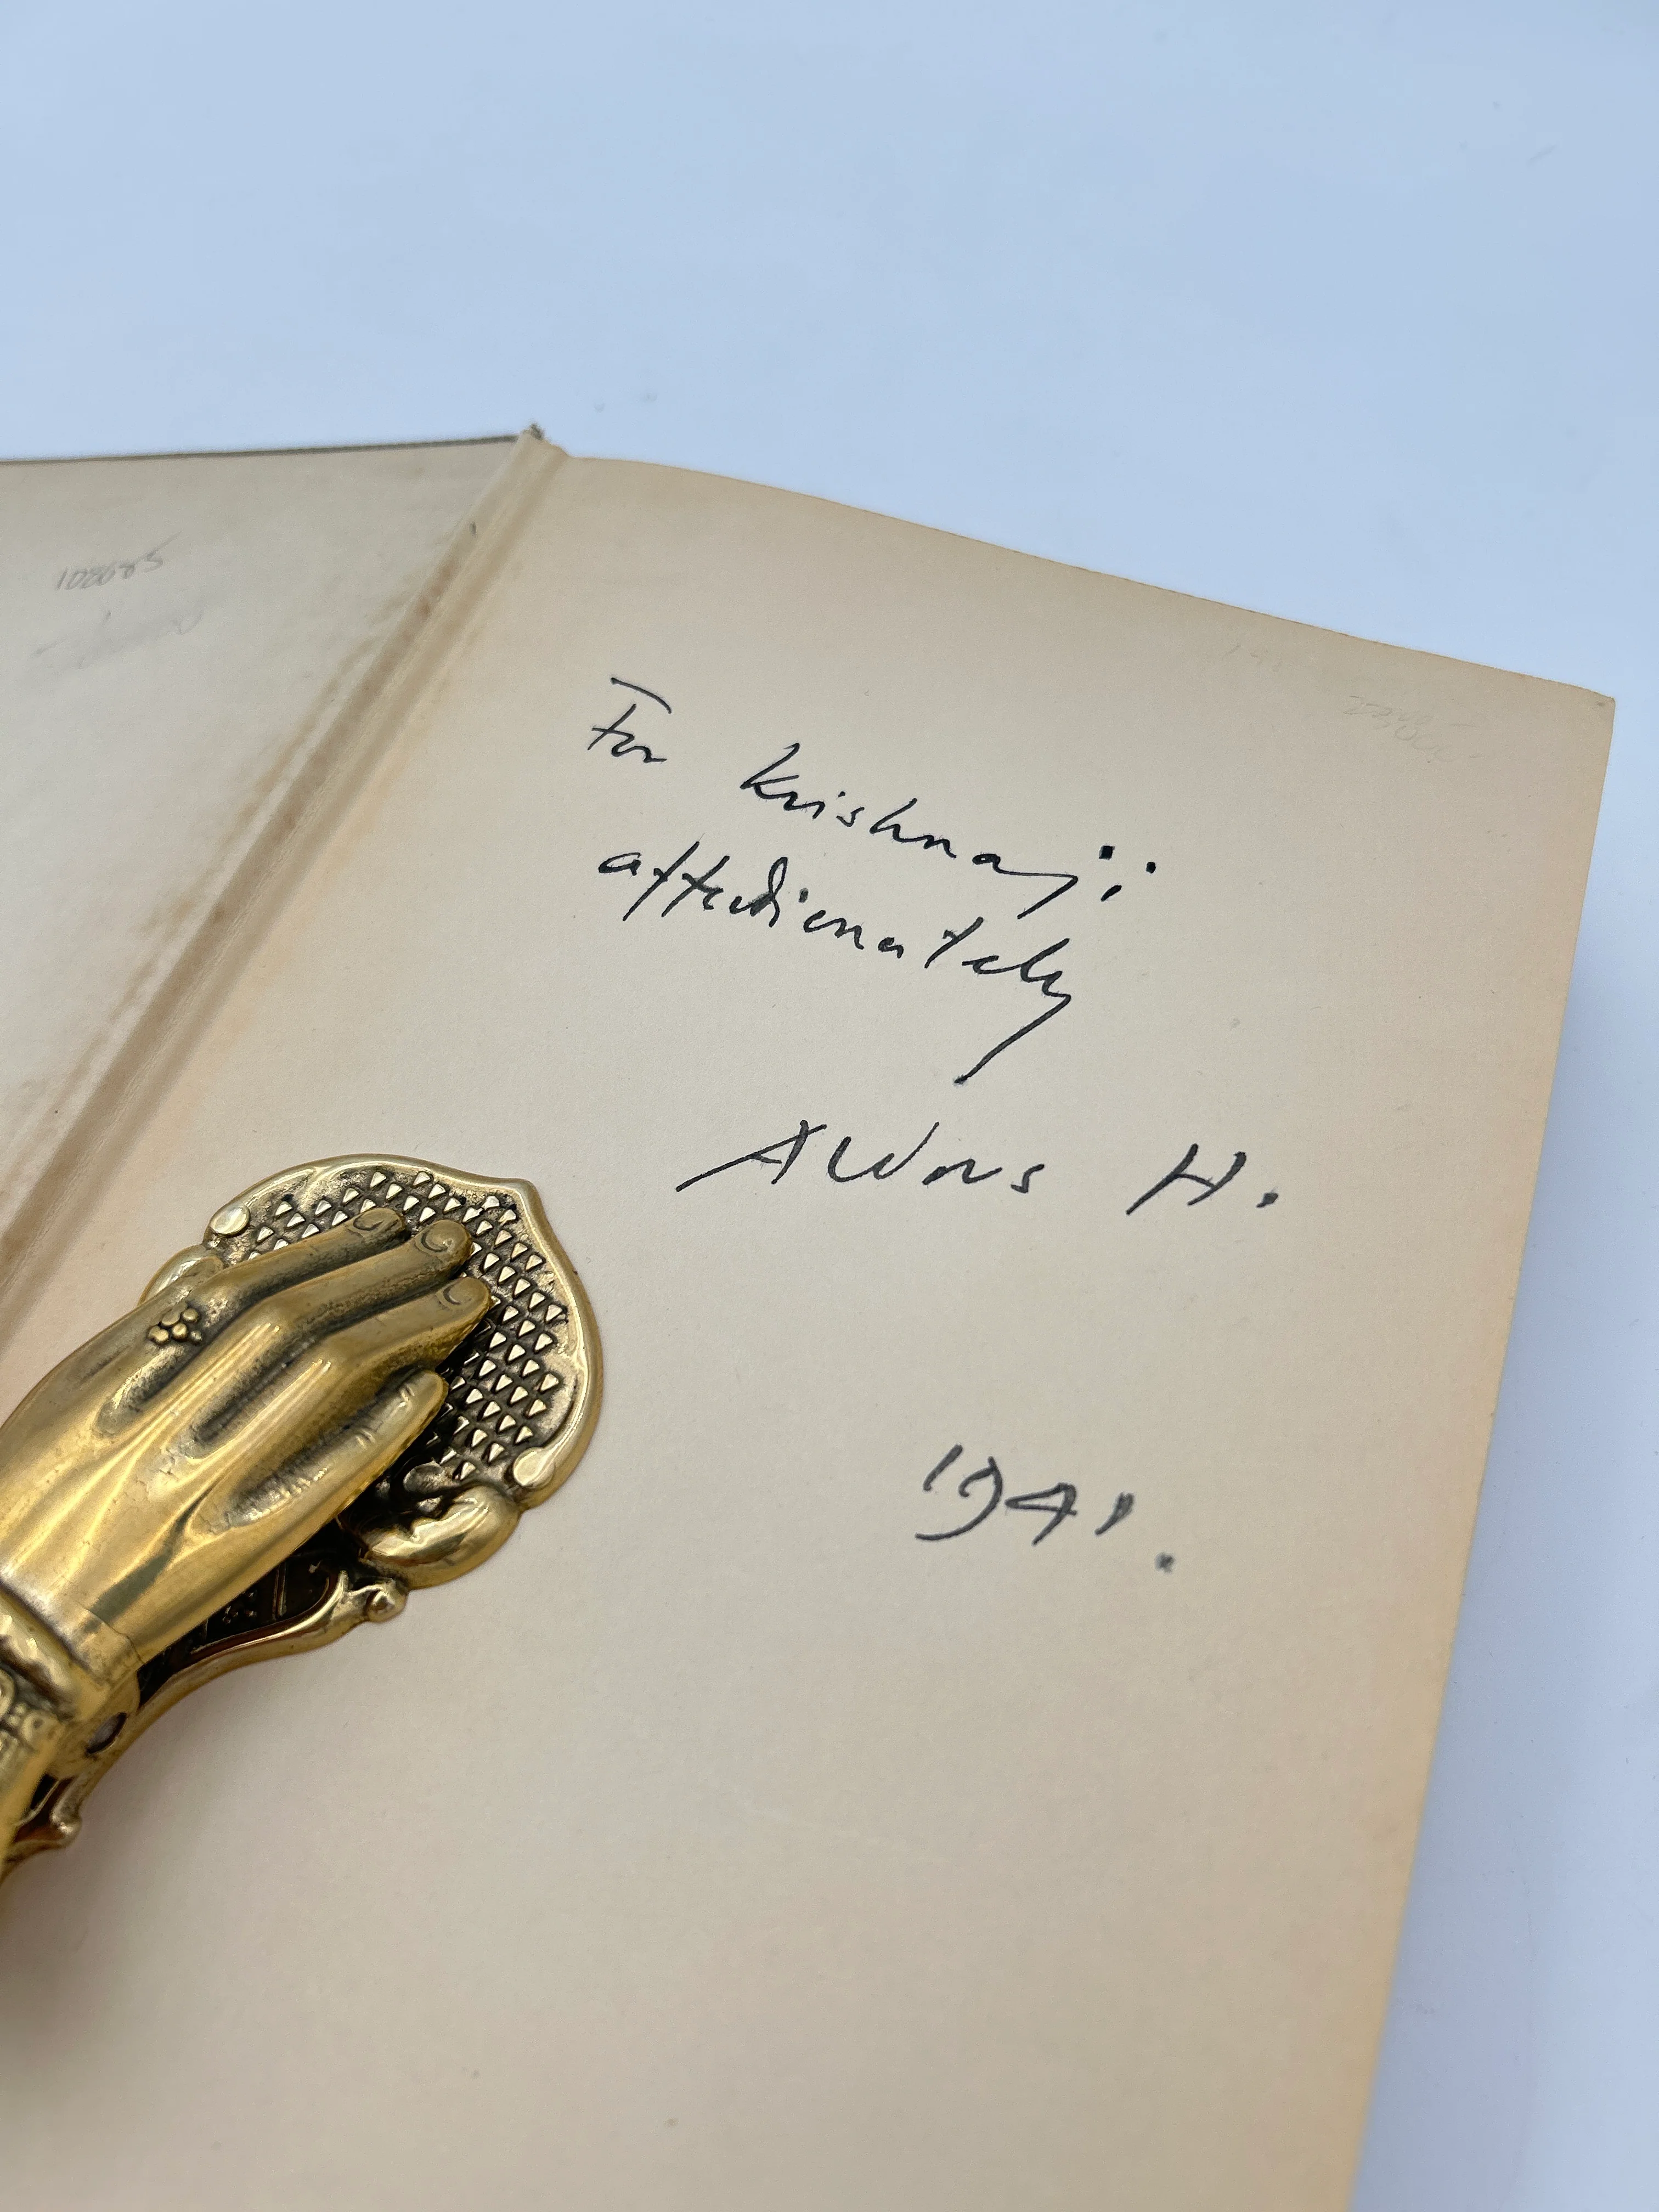 102685
For Krishnaji
affectionately
Aldous H.
1941.